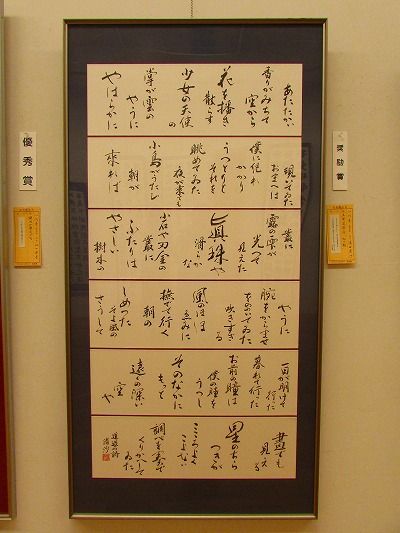 あたたかい
香りがみちて
空から
花を播き
散らす
少女の天使
の
掌が雲の
やうに
やはらかに
覗いてゐた
おまへは
僕に凭れ
かかり
うつとりと
それを
眺めてゐた
夜が来ても
小鳥がうたひ
朝が
来れば
叢に
露の雫が
光つて
見えた
真珠や
滑らか
な
小石や刃金の
叢に
ふたりは
やさしい
樹木の
やうに
腕をからませ
をののいてゐた
吹きすぎる
風のほほ
ゑみに
撫でて行く
朝の
しめつた
その風の
さうして
一日が明けて
行つた
暮れて行つた
お前の瞳は
僕の瞳を
うつし
そのなかに
もつと
遠くの深い
空
や
昼でも
見える
星のちら
つきが
こころよく
こよない
調べを奏で
くりかへして
ゐた
道造の詩
優秀賞
奨励賞